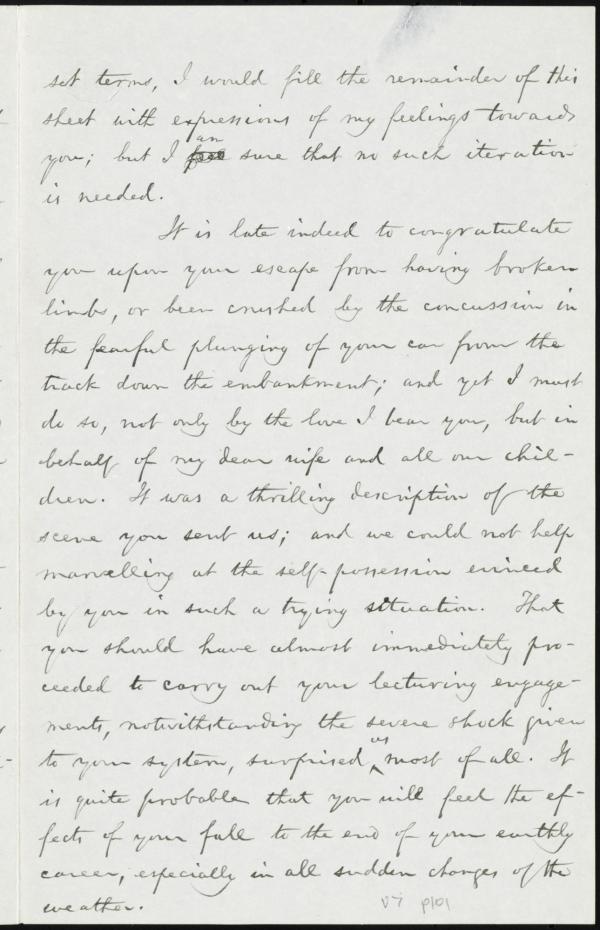 set terms, I would fill the remainder of this
sheet with expressions of my feelings towards
you; but I am sure that no such iteration
is needed.
It is late indeed to congratulate
you upon your escape from having broken
limbs, or been crushed by the concussion in
the fearful plunging of your car from the
track down the embankment; and yet I must
do so, not only by the love I bear you, but in
behalf of my dear wife and all our chil-
dren. It was a thrilling description of the
scene you sent us; and we could not help
marvelling at the self-possession evinced
by you in such a trying situation. That
you should have almost immediately pro-
ceeded to carry out your lecturing engage-
ments, notwithstanding the severe shock given
to your system, surprised us most of all. It
is quite probable that you will feel the ef-
fects of your fall to the end of your earthly
career, especially in all sudden changes of the
weather.